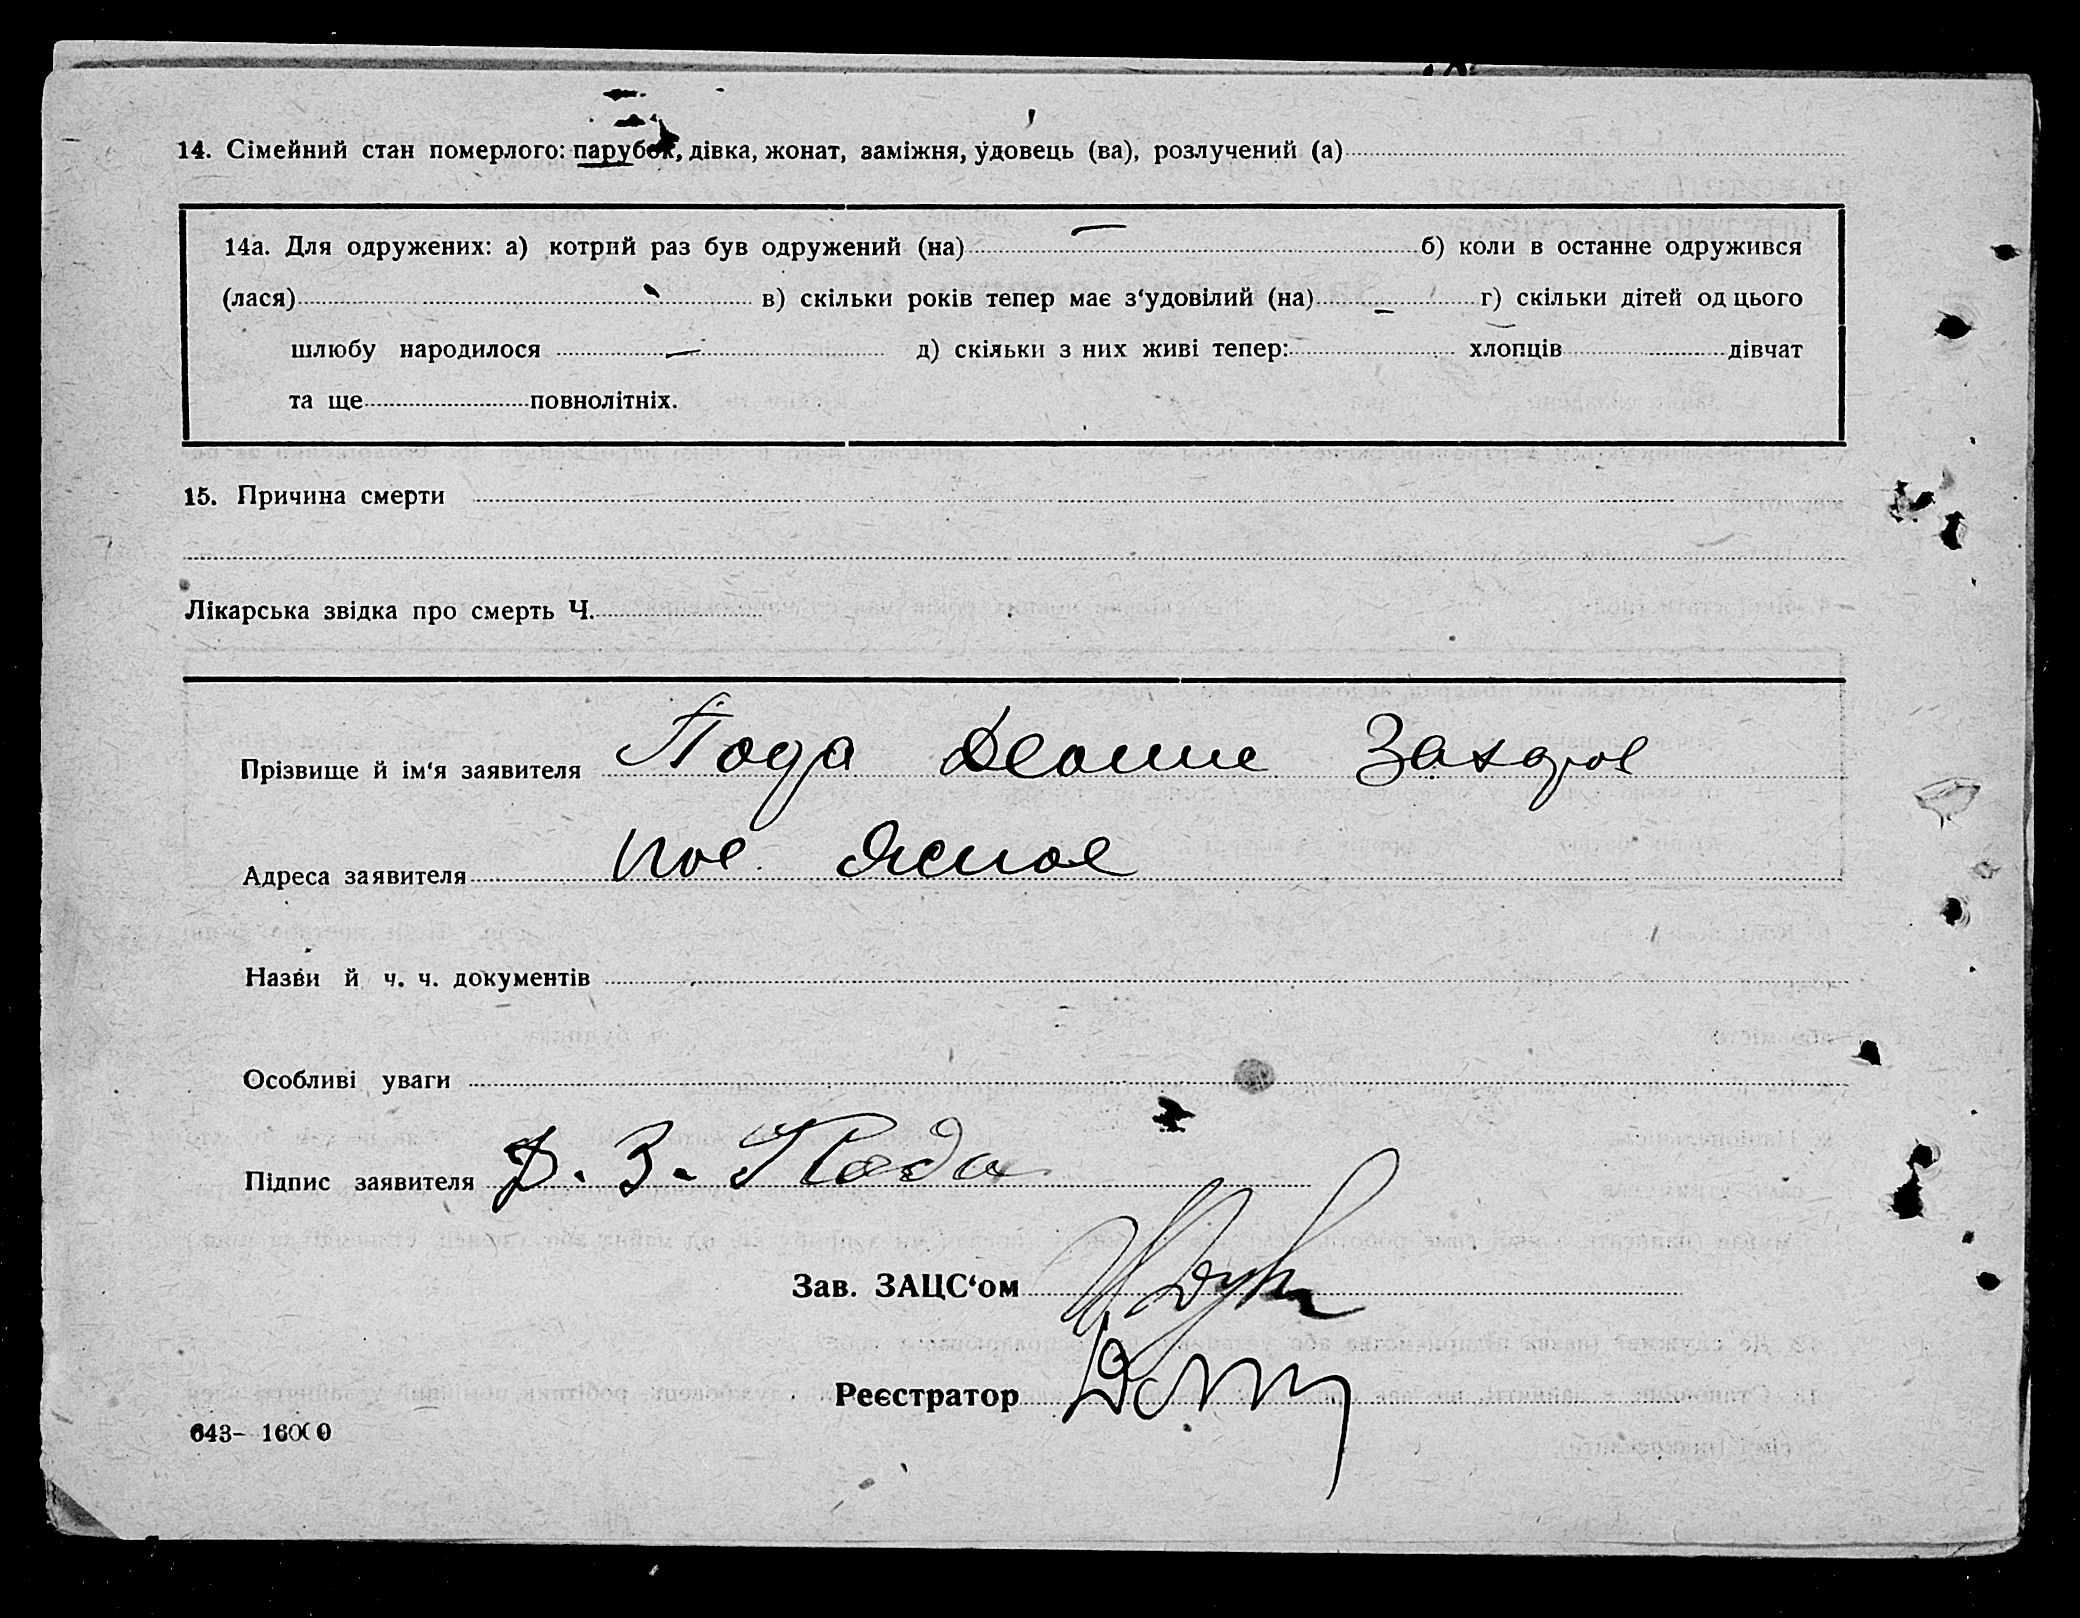 14. Сімейний стан померлого: парубок, дівка, жонат, заміжня, удовець (ва), розлучений (а)
14а. Для одружених: а) котрий раз був одружений (на) — б) коли в останне одружився
(лася) в) скільки років тепер має з‘удовілий (на) — г) скільки дітей од цього
шлюбу народилося — д) скільки з них живі тепер: хлопців дівчат
та ще повнолітніх.
15. Причина смерти
Лікарська звідка про смерть Ч.
Прізвище й ім‘я заявителя Пода
Адреса заявителя пос. Ясное
Назви й ч. ч. документів
Особливі уваги
Підпис заявителя Д. З. Пода
Зав. ЗАЦС‘ом
Реєстратор
643– 16000